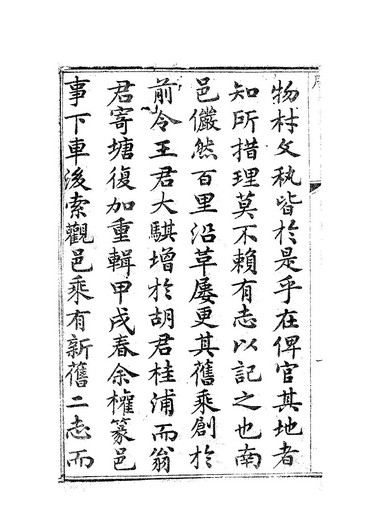 物材文秇皆於是乎在俾官其地者
知所措理莫不賴有志以記之也南
邑儼然百里沿革屡更其舊乘創於
前令王君大騏增於胡君桂浦而翁
君寄塘復加重輯甲戌春余權篆邑
事下車後索觀邑乘有新舊二志而